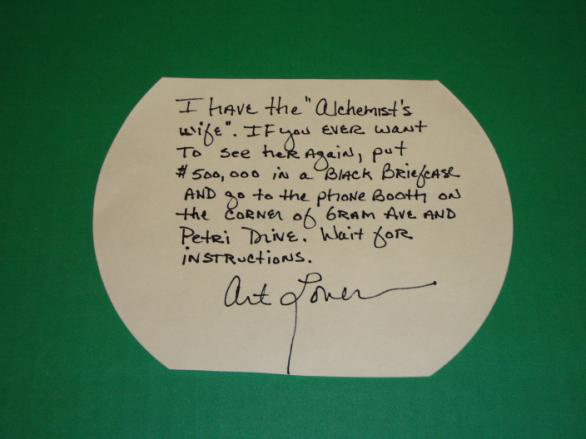 I HAVE the "Alchemist's
wife". IF you EVER WANT
To see her Again, put
$500,000 in a BLACK BriefcASE
AND go to the phone Booth on
the CORNER of GRAM Ave AND
Petri Drive. Wait for
iNSTRUCTIONS.
Art Lover